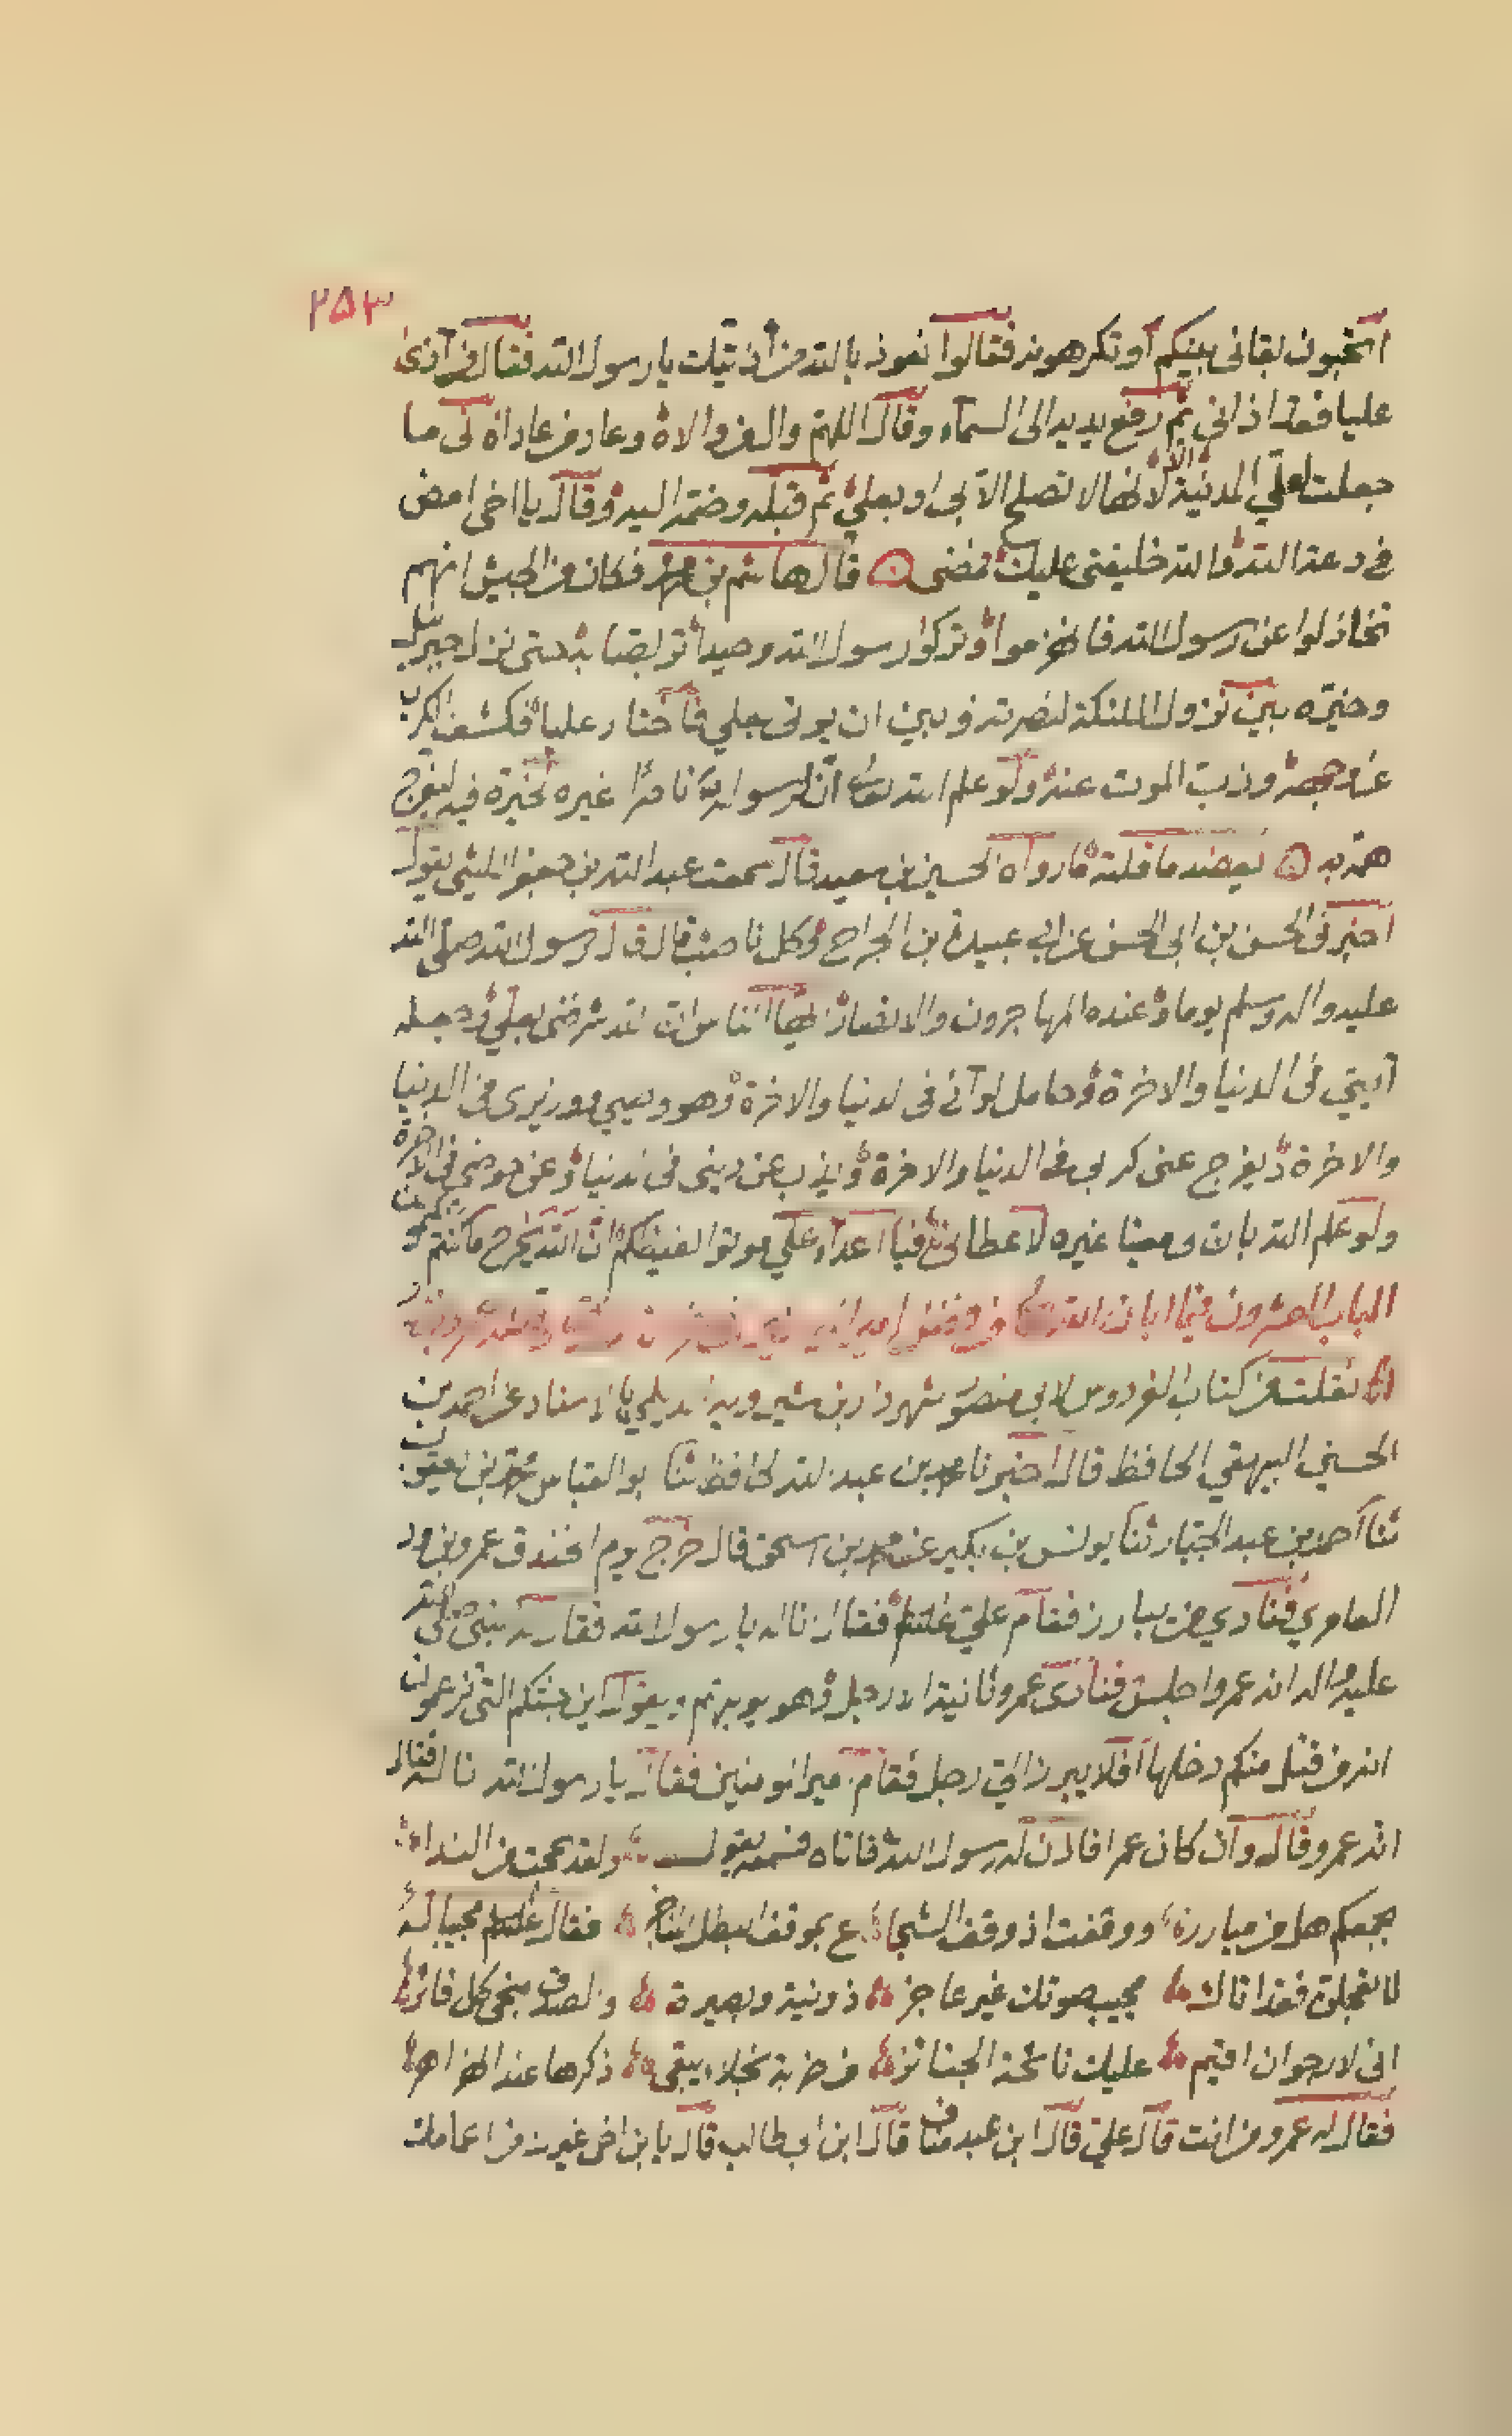 ٢٥٣
اتحبون بقائى بينكم أو تكرهونه فقالوا نعوذ بالله من أذيتك يا رسول الله فقال من آذى
عليا فقد اذانى ثم رفع يديه الى السماء وقال اللهم وال من والاه وعاد من عاداه انى ما
جعلت لعلي المدينة الا لانها لا تصلح الا بى او بعلي ثم قبله وضمه اليه وقال يا اخى امض
فى دعة الله والله خليفتى عليك فمضى قال هاشم بن محمد فكان من الجيش انهم
تخاذلوا عن رسول الله فانهزموا وتركوا رسول الله وحيدا حتى نزل جبرئيل
وخيره بين نزول الملئكة لنصرته وبين ان يوتى بعلي فاختار عليا فكشف الكرب
عن وجهه وذب الموت عنه ولو علم الله تعالى ان لرسوله ناصرا غيره لخيره فيه ليفرج
همه به يعضد ما قلته ما رواه الحسين بن سعيد قال سمعت عبد الله بن جعفر الليثى يقول
اخبرنى الحسن بن ابى الحسن عن ابي عبيدة بن الجراح وكل ناصب قال قال رسول الله صلى الله
عليه واله وسلم يوما وعنده المهاجرون والانصار ايها الناس ان الله شرفنى بعلي وجعله
آيتي فى الدنيا والاخرة وحامل لوآئى فى الدنيا والاخرة وهو وصيي ووزيرى فى الدنيا
والاخرة ويفرج عنى كربى فى الدنيا والاخرة ويذب عن دينى فى الدنيا وعن حوضى فى الاخرة
ولو علم الله بان وصيا غيره لاعطانى فيا اعداء علي موتوا بغيضكم ان الله مخرج ما كنتم تكرهون
الباب العشرون فيما ابان الله من فضل امير المؤمنين
نقلت من كتاب الفردوس لابى منصور شهردار بن شيرويه الديلمي بالاسناد عن احمد بن
الحسين البيهقي الحافظ قال اخبرنا محمد بن عبد الله الحافظ ثنا ابو العباس محمد بن يعقوب
ثنا احمد بن عبد الجبار ثنا يونس بن بكير عن محمد بن اسحق قال خرج يوم الخندق عمرو بن ود
العامري فنادى من يبارز فقام علي فقال انا له يا رسول الله فقال له النبى صلى الله
عليه واله انه عمرو اجلس فنادى عمرو ثانية الا رجل وهو يوبهم ويقول اين جنتكم التى تزعمون
انه من قتل منكم دخلها افلا يبرز الي رجل فقام امير المومنين فقال يا رسول الله انا له فقال
انه عمرو قال وان كان عمرا فاذن له رسول الله فاتاه فسمعه يقول ولقد بححت من النداء
بجمعكم هل من مبارزة ووقفت اذ وقف الشجاع بموقف البطل المناجز فقال علي مجيبا له
لا تعجلن فقد اتاك مجيب صوتك غير عاجز ذو نية وبصيرة والصدق منجى كل فائز
انى لارجو ان اقيم عليك نائحة الجنائز من ضربة نجلاء يبقى ذكرها عند الهزاهز
فقال له عمرو من انت قال علي قال ابن عبد مناف قال ابن ابى طالب قال يا بن اخى غيرك من اعمامك